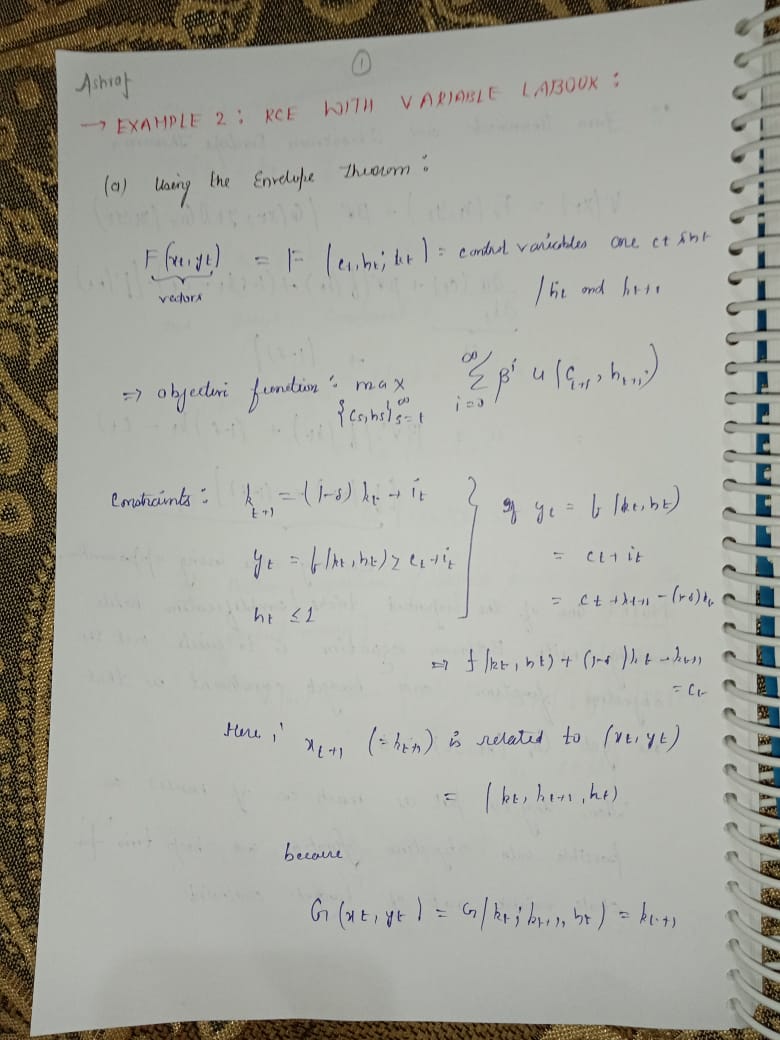 ①
Ashraf
→ EXAMPLE 2 : RCE WITH VARIABLE LABOUR :
(a) Using the Envelope Theorem :
F(xt, yt) = F (ct, ht; kt) = control variables are ct & ht
vectors
/ kt and kt+1
⇒ objective function : max {cs, hs}∞s=t ∞Σi=0 βi u (ct+i, ht+i)
Constraints : kt+1 = (1-δ) kt + it
yt = f(kt, ht) ≥ ct + it
ht ≤ 1
If yt = f(kt, ht)
= ct + it
= ct + kt+1 - (1-δ)kt
⇒ f(kt, ht) + (1-δ)kt - kt+1
= ct
Here, xt+1 (= kt+1) is related to (xt, yt)
= (kt, kt+1, ht)
because
G(xt, yt) = G(kt; kt+1, ht) = kt+1